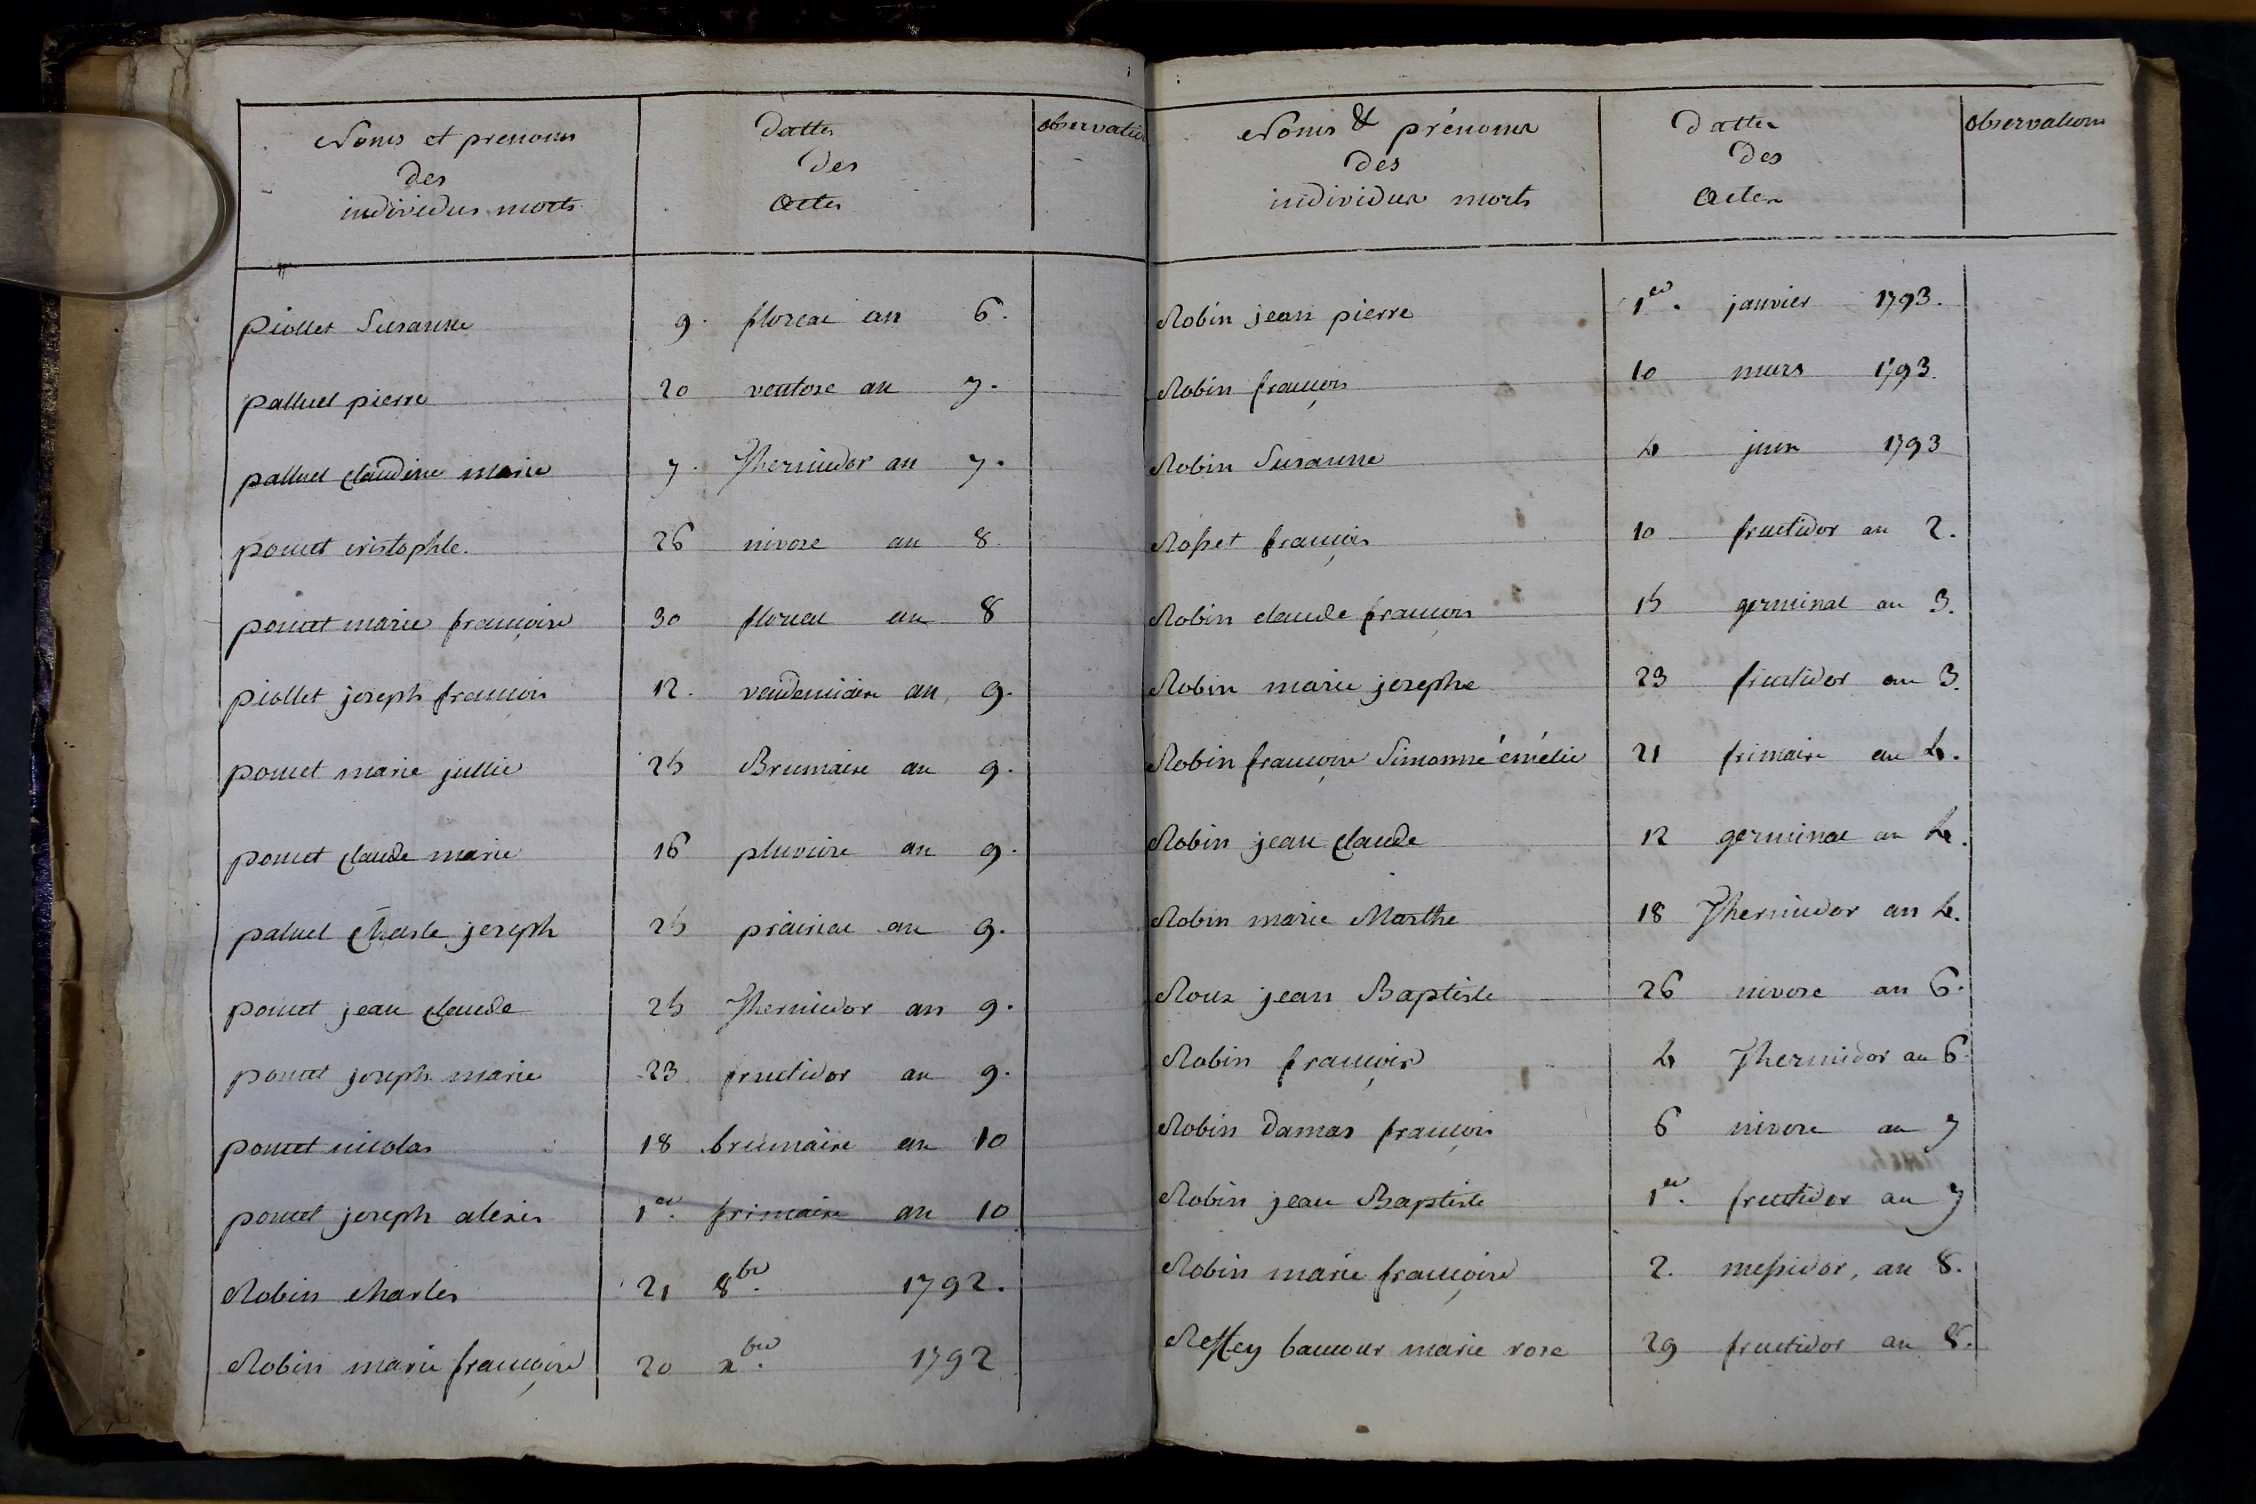 Noms et prenoms
des
individus morts
Dattes
des
Actes
observatio
piollet Susanne 9. floreal an 6.
palluel pierre 20 ventose an 7.
palluel claudine marie 7. Thermidor an 7.
pomet cristophle. 26 nivose an 8
pomet marie françoise 30 floreal an 8
piollet joseph francois 12. vendemiaire an 9.
pomet marie jullie 25 Brumaire an 9.
pomet claude marie 16 pluviose an 9.
paluel Charle joseph 25 prairial an 9.
pomet jean claude 25 Thermidor an 9.
pomet joseph marie 23 fructidor an 9.
pomet nicolas 18 brumaire an 10
pomet joseph alexis 1er. frimaire an 10
Robin charles 21 8bre. 1792.
Robin marie françoise 20 xbre. 1792
Noms & prénoms
des
individus morts
Dattes
des
Actes
observations
Robin jean pierre 1er. janvier 1793.
Robin françois 10 mars 1793
Robin Susanne 4 juin 1793
Rosset françois 10 fructidor an 2.
Robin claude françois 15 germinal an 3.
Robin marie josephe 23 fructidor an 3.
Robin françoise Simonne émélie 21 frimaire an 4.
Robin jean claude 12 germinal an 4.
Robin marie Marthe 18 Thermidor an 4.
Roux jean Baptiste 26 nivose an 6.
Robin françois 4 Thermidor an 6.
Robin Damas françois 6 nivose an 7
Robin jean Baptiste 1er. fructidor an 7
Robin marie françoise 2. messidor, an 8.
marie rose 29 fructidor an 8.